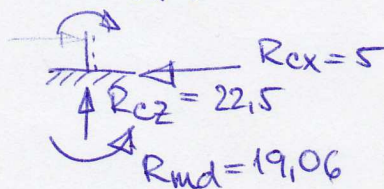 Rcx = 5
Rcz = 22,5
Rmd = 19,06